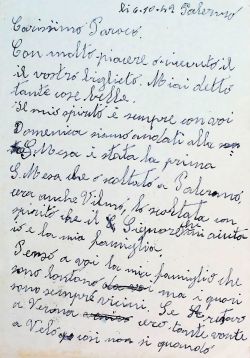 li 6.10.42 Palermo
Carissimo Paroco.
Con molto piacere o ricevuto il
il vostro biglieto. Mi ai detto
tante cose belle.
Il mio spirito è sempre con voi
Domenica siamo andati alla
S. Mesa è stata la prima
S. Mesa che o scoltato a Palermo,
cera anche Vilma, lo scoltata con
spirito che il Signore aiuta
io e la mia famiglia.
Penso a voi la mia famiglia che
sono lontano ma i quori
sono sempre vicini. Se
a Verona ero tante volte
a Velo così non si quando